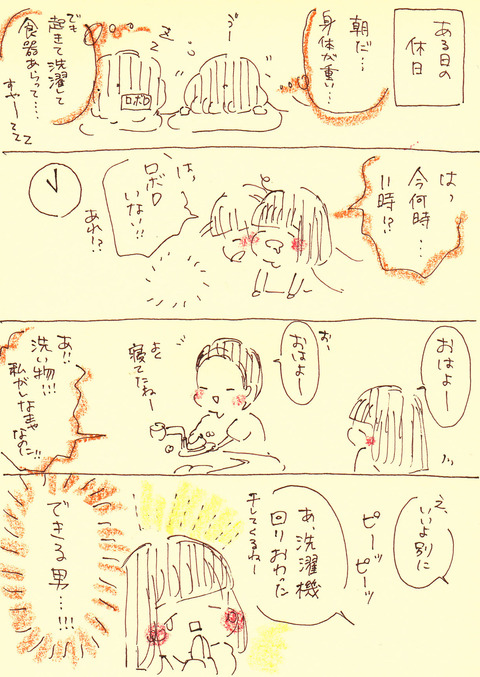 ある日の
休日
朝だ…
身体が重い…
ぅー
zz
ロボロ
でも
起きて洗濯して
食器あらって…
すやーzzz
はっ
今何時…
11時!?
はっ
ロボロ
いない!!
あれ!?
おはよー
お、
おはよー
よく
寝てたねー
あ!!
洗い物!!!
私がしなきゃ
なのに!!
え、
いいよ別に
ピーッ
ピーッ
あ、洗濯機
回りおわった
干してくるねー
できる男…!!!